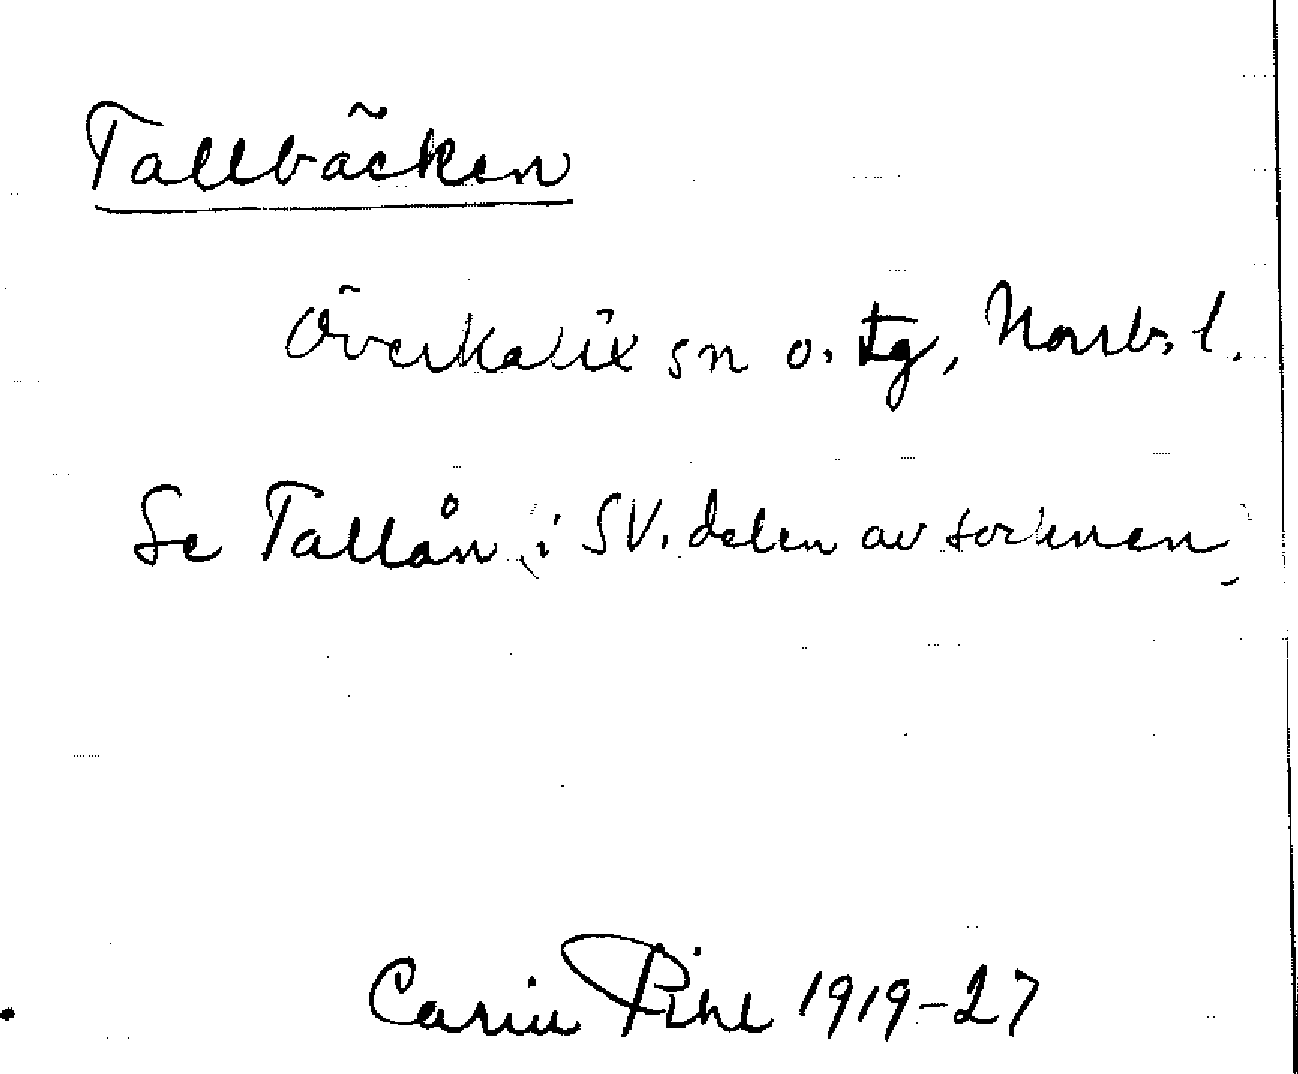 Tallbäcken
Överkalix sn o. tg, Norrb. l.
Se Tallån i SV. delen av socknen
Carin Pihl 1919-27